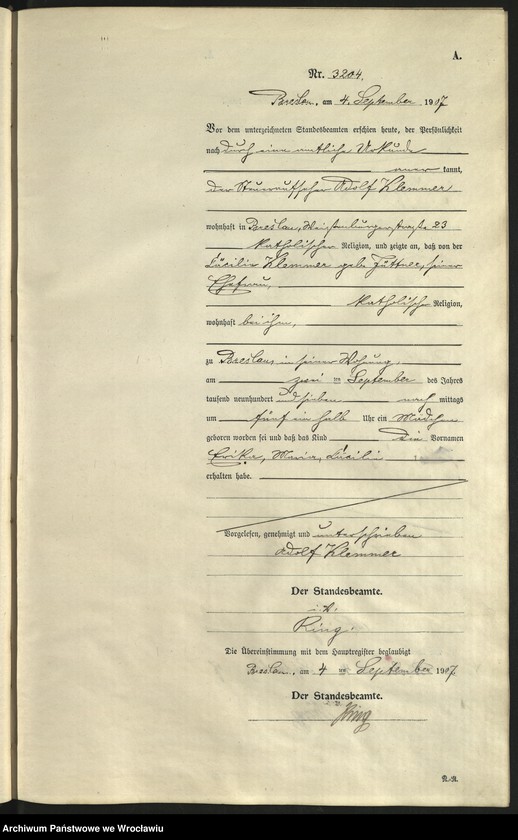 A.
Nr. 3204.
Breslau, am 4. September 1907
Vor dem unterzeichneten Standesbeamten erschien heute, der Persönlichkeit
nach durch eine amtliche Urkunde
aner kannt,
der Steueraufseher Adolf Klemmer
wohnhaft in Breslau, Weißenburgerstraße 23
katholischer Religion, und zeigte an, daß von der
Lucilie Klemmer geb. Jüttner, seiner
Ehefrau,
katholische Religion,
wohnhaft bei ihm,
zu Breslau, in seiner Wohnung,
am zwei ten September des Jahres
tausend neunhundert und sieben nach mittags
um fünf ein halb Uhr ein Mädchen
geboren worden sei und daß das Kind die Vornamen
Erika, Maria, Lucilie
erhalten habe.
Vorgelesen, genehmigt und unterschrieben
Adolf Klemmer
Der Standesbeamte.
i. V.
Ring.
Die Übereinstimmung mit dem Hauptregister beglaubigt
Breslau, am 4 ten September 1907.
Der Standesbeamte.
Ring
Archiwum Państwowe we Wrocławiu